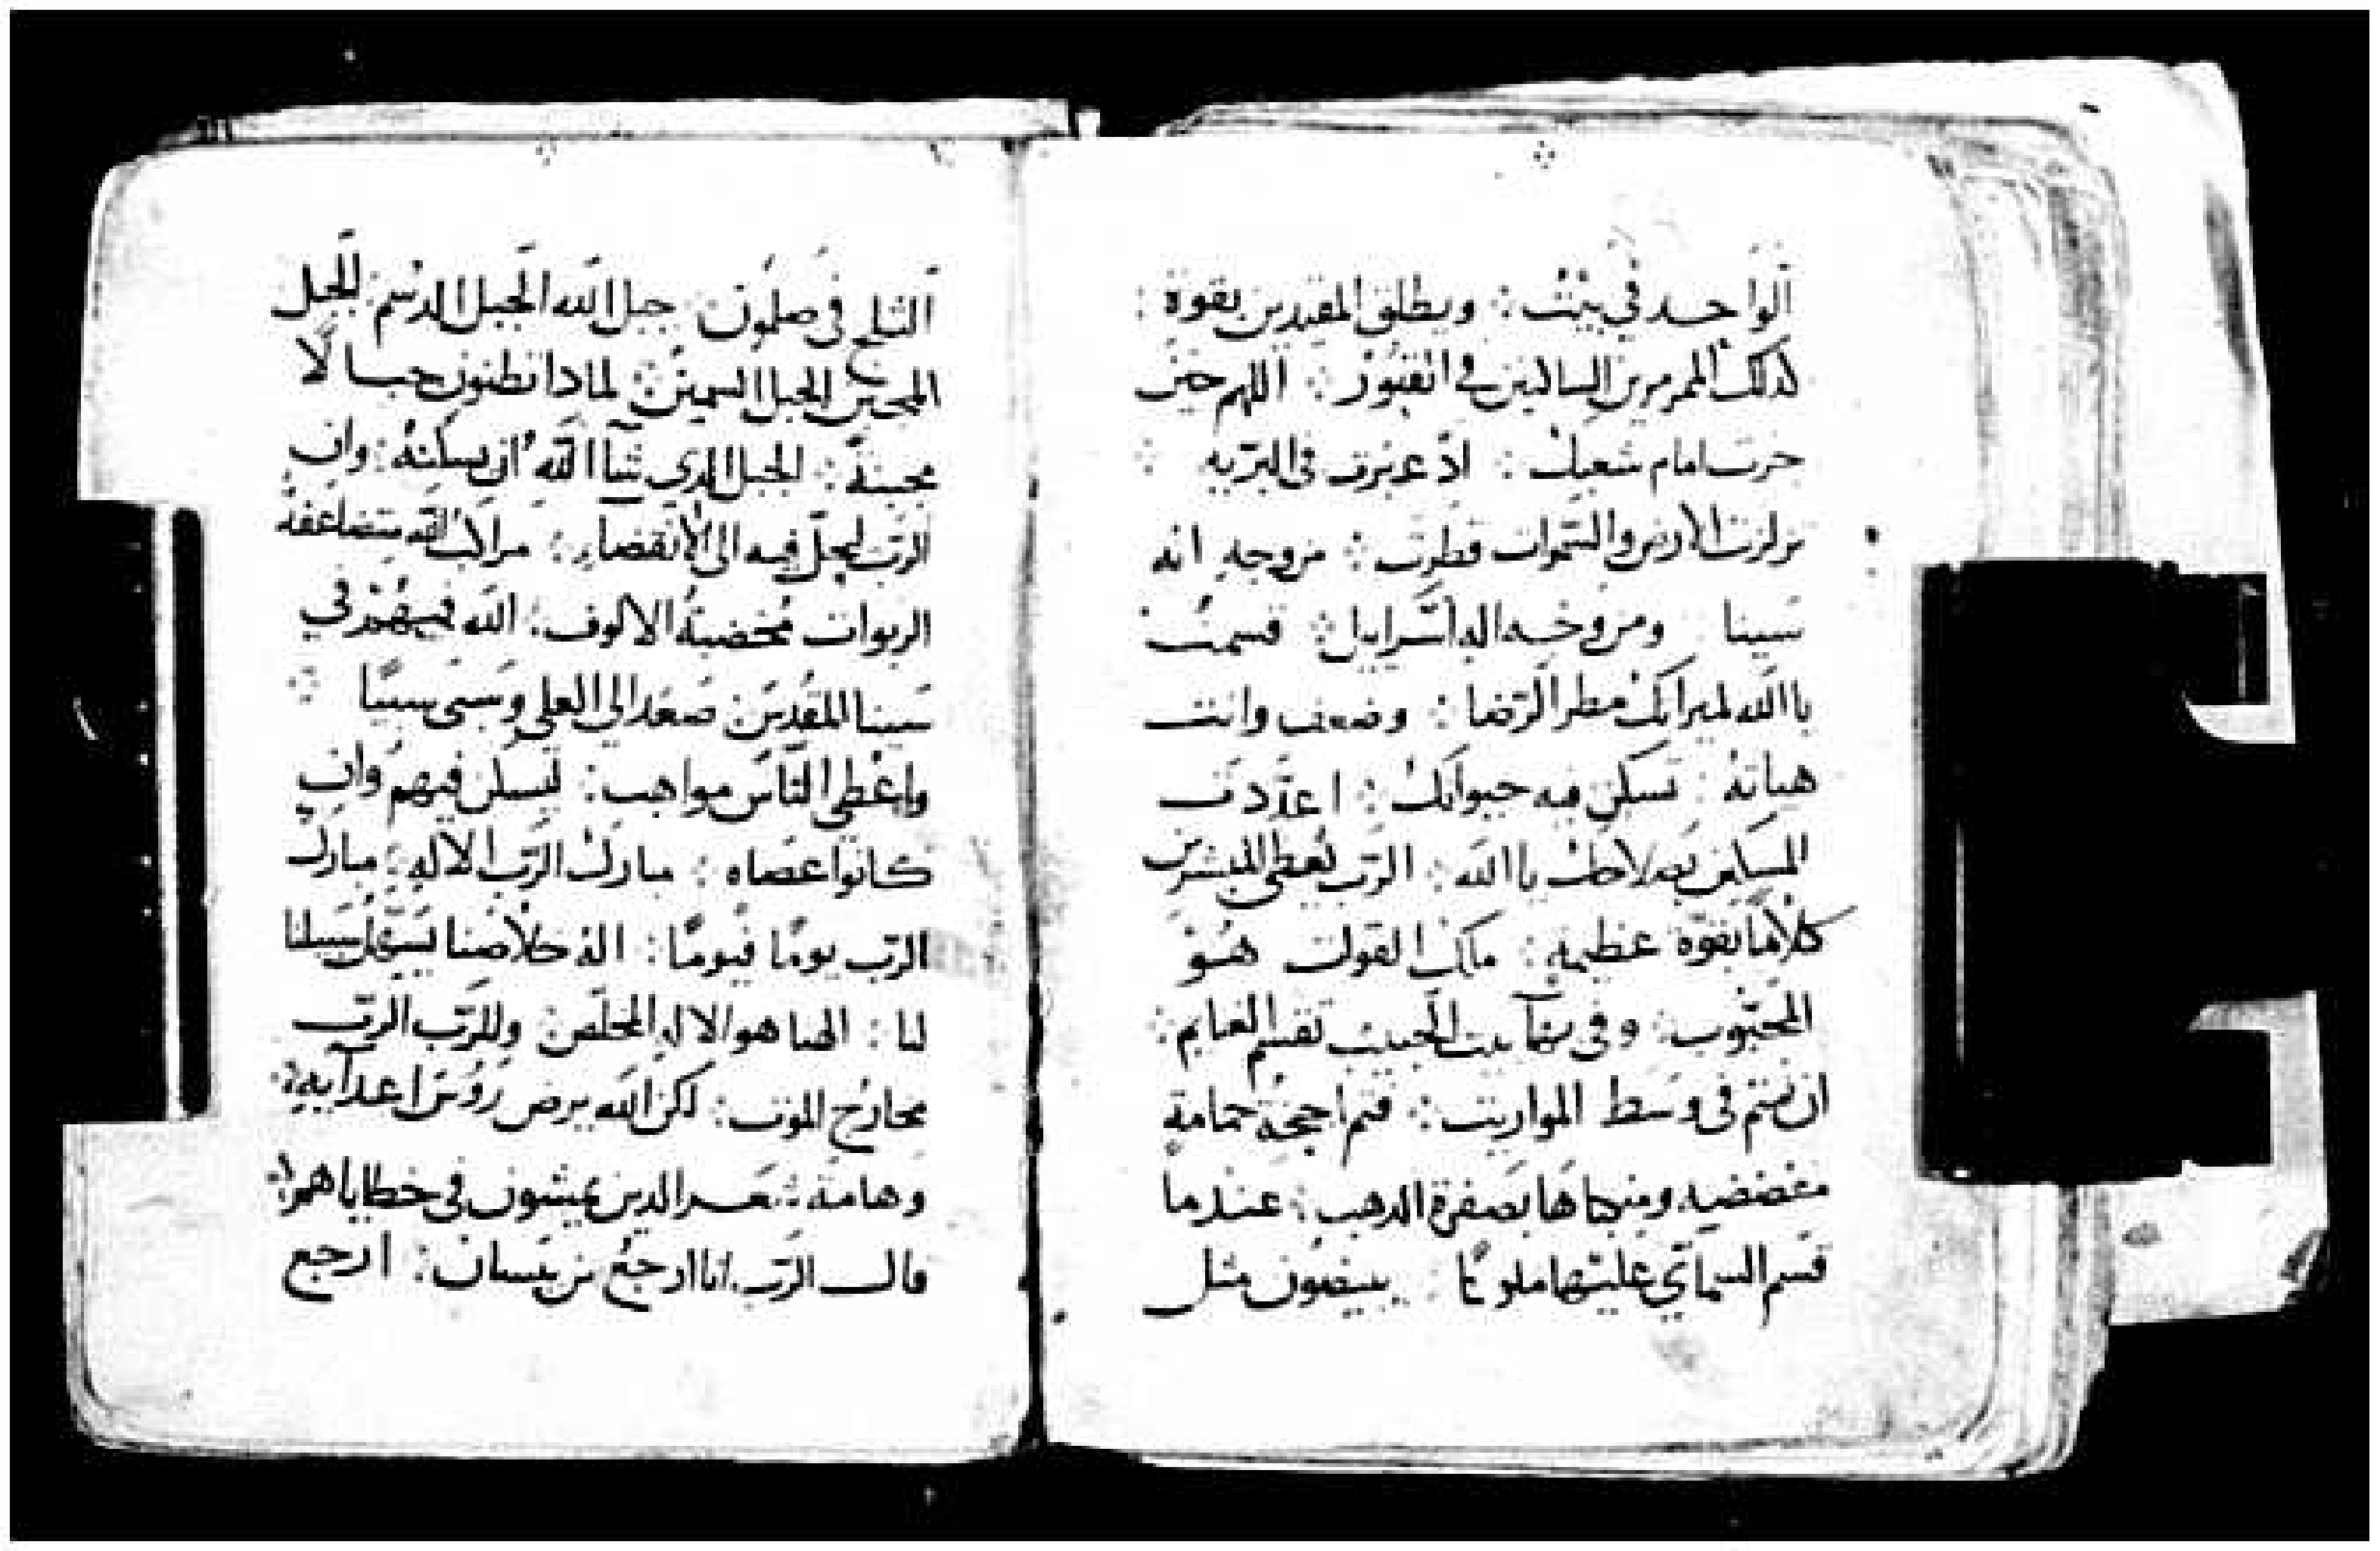 الواحد في بيت ؛ ويطلق المقيدين بقوة :
كذلك الممرمرين الساكنين في القبور ؛ اللهم حين
خرجت امام شعبك ؛ اذ عبرت في البرّيه
تزلزلت الارض والسّموات قطرت ؛ من وجه اله
سينا ومن وجه اله اسّراييل ؛ قسمت
ياالله لميراتك مطر الرّضا ؛ وضعف وانت
هياته ؛ تسكن فيه حيواتك ؛ اعدّدت
المسكين بصلاحك ياالله ؛ الرّب يُعطي المبشرين
كلامًا بقوّة عظيمه ؛ ملك القوات هُو
المحبوب ؛ وفي بهآ بيت الحبيب تقسم الغنايم ؛
ان نمتم في وسط المواريت ؛ فتم اجنحة حمامة
مغضضيه ومنكباها بصفرة الدهب ؛ عندما
قسم السمآي عليها ملوكًا . يبيضون مثل
الثلج في صلمون ؛ جبل الله الجبل الدسم ؛ الجبل
المجبن الجبل السمين ؛ لمادا تظنون جبالًا
مجبنة ؛ الجبل الدي شآ الله ان يسكنه ؛ وان
الرّب ليحلّ فيه الى الانقضاء ؛ مراكب الله متضاعفة
الربوات مُخصبة الالوف ؛ الله فيهم في
سينا المقدس ؛ صعد الي العلي وسبى سبيًا ؛
واعطي النّاس مواهب ؛ ليسكن فيهم وان
كانوا عصاه ؛ مبارك الرّب الاله ؛ مبارك
الرّب يومًا فيومًا ؛ اله خلاصنا يسهّل سبيلنا
لنا ؛ الهنا هو الاله المخلص ؛ وللرّب الرّب
مخارج الموت ؛ لكن الله يرض رؤس اعدآيه ؛
وهامة شعر الدين يمشون في خطاياهم ؛
قال الرّب انا ارجع من بيسان ؛ ارجع